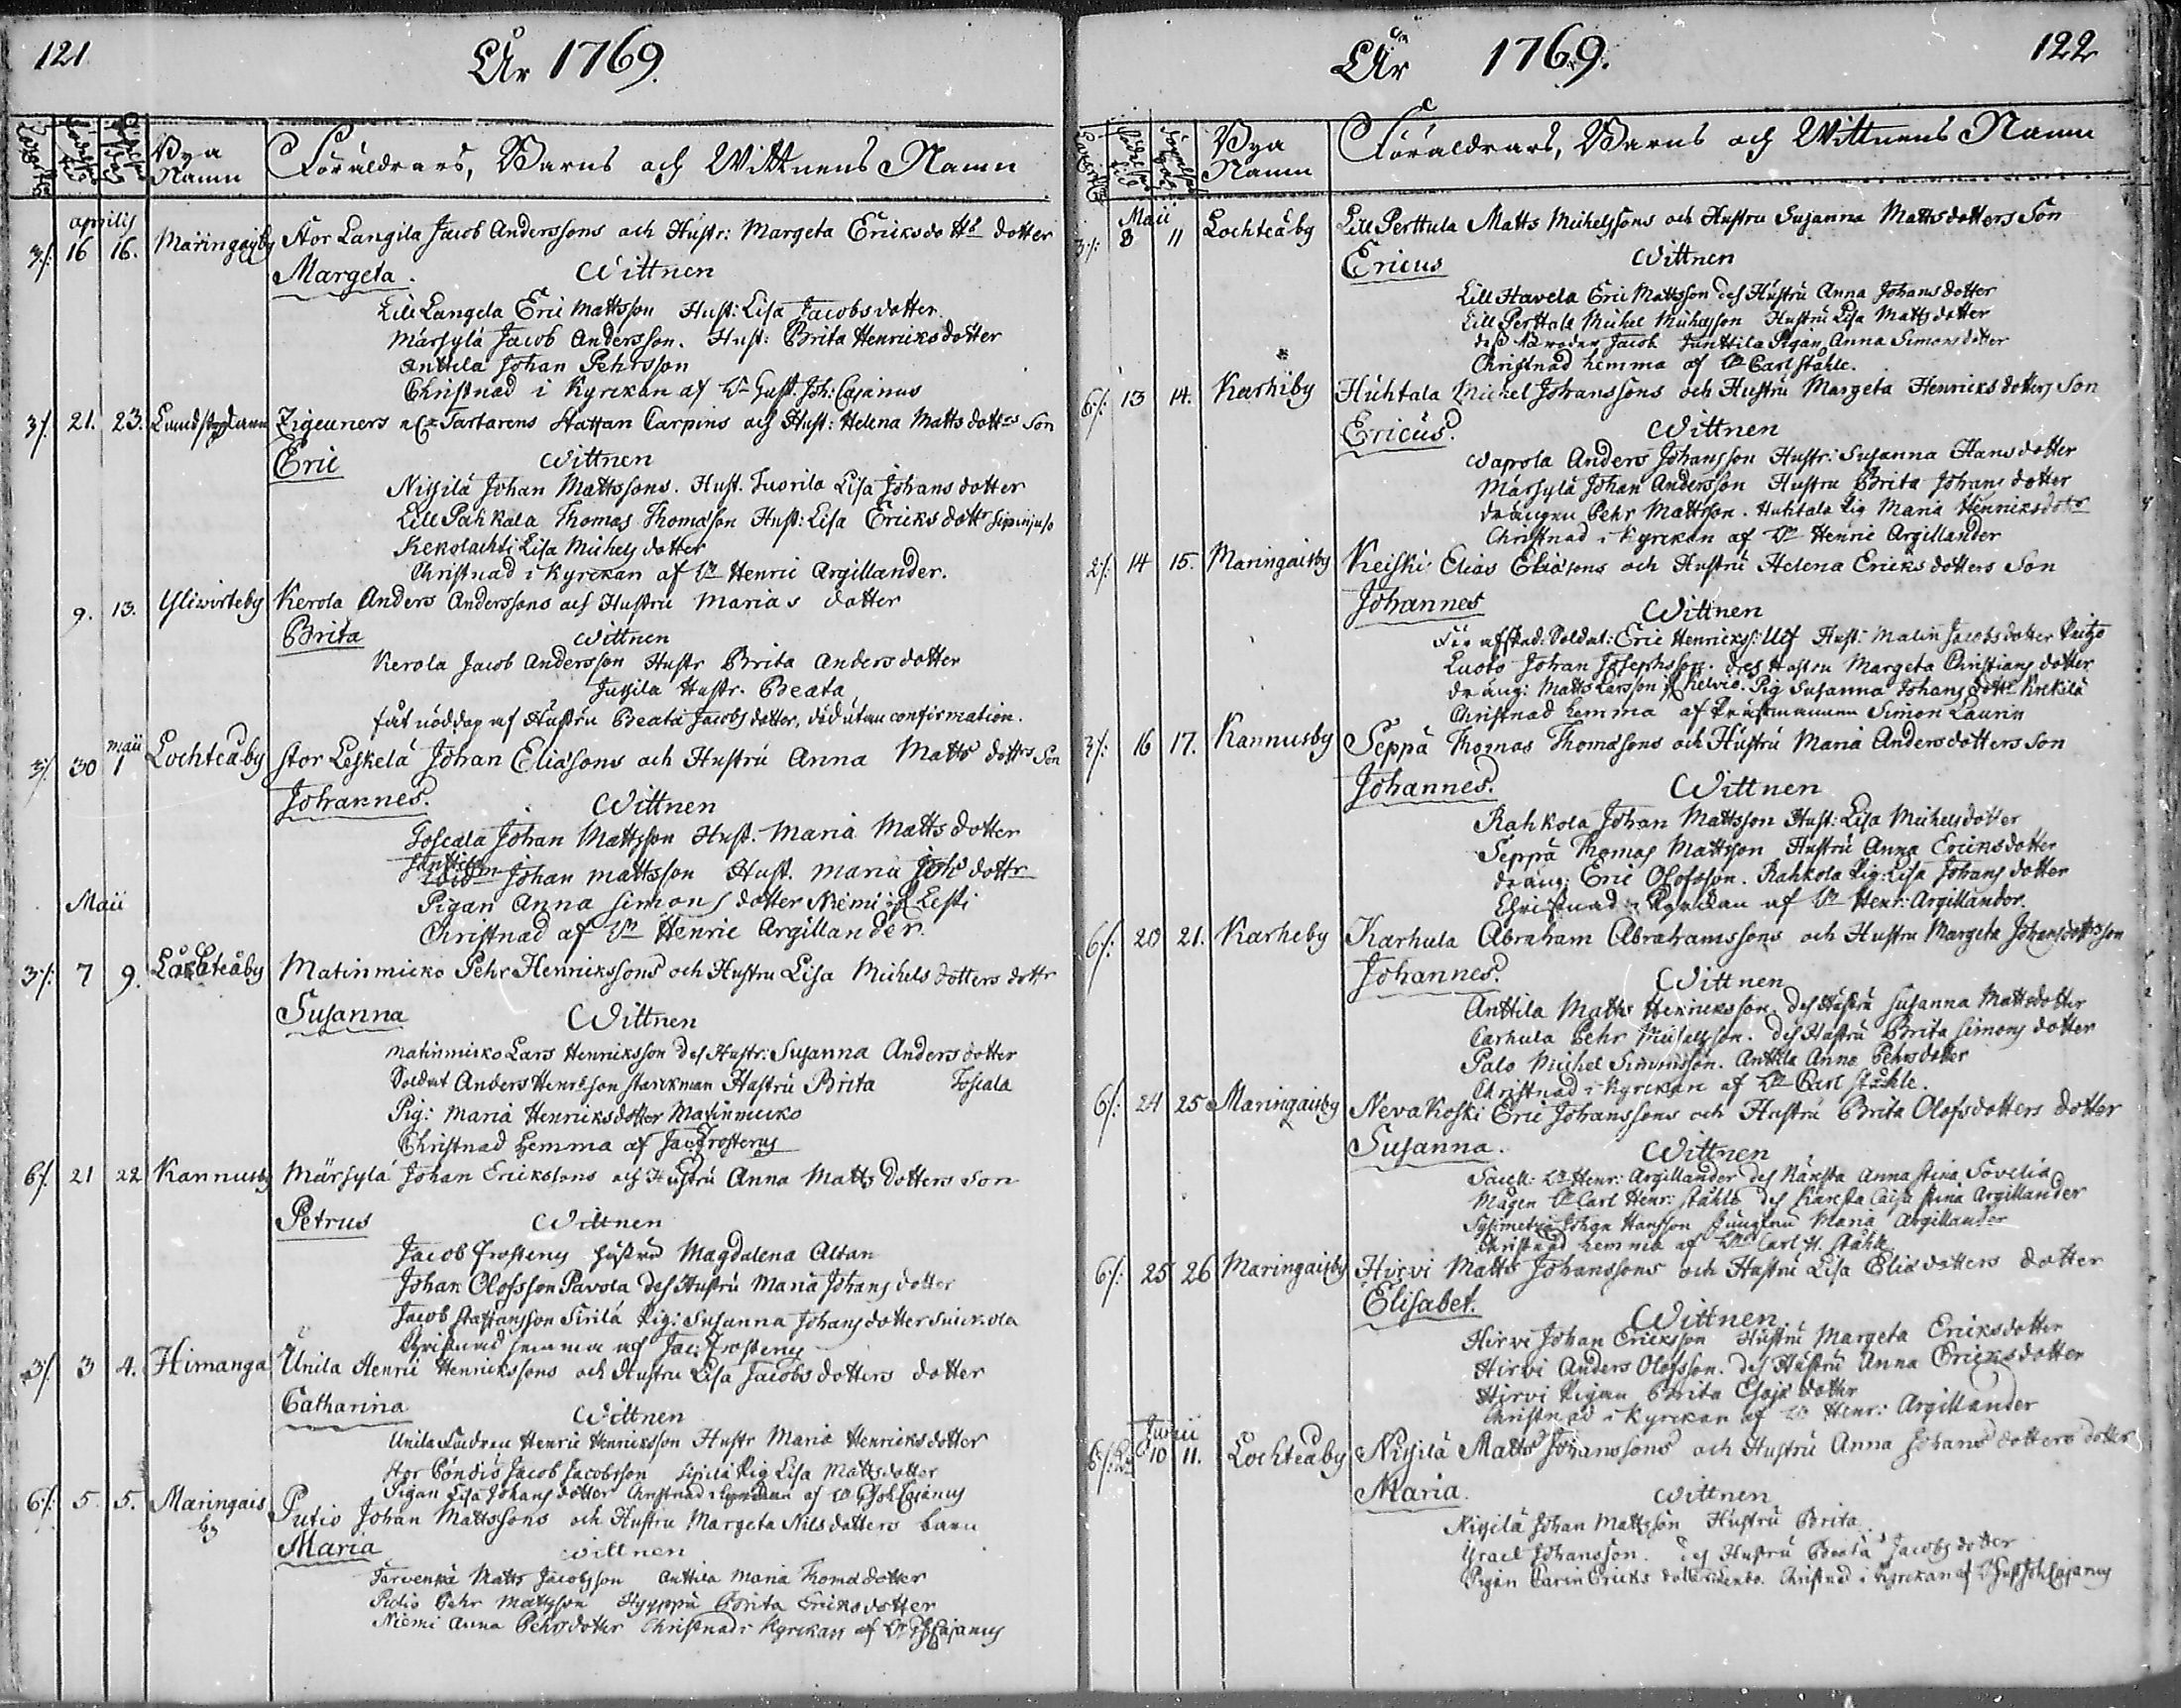 121
År 1769.
Bya Namn
Föräldrars, Barns och Wittnens Namn
aprilis
3/: 16 16. Maringaisby Stor Langila Jacob Anderssons och Hustr: Margeta Ericksdottrs dotter
Margeta. Wittnen
Lill Langela Eric Mattsson Hust: Lisa Jacobsdotter.
Märsylä Jacob Andersson. Hust: Brita Henricksdotter
Anttila Johan Pehrsson
Christnad i Kyrckan af Hr Gust. Joh: Cajanus
3/. 21. 23. Zigeuners Tartarens Staffan Carpins och Hust: Helena Matts dotters Son
Eric Wittnen
Niskilä Johan Mattssons. Hust. Lisa Johans dotter
Lill Pahkala Thomas Thomasson Hust: Lisa Ericks dottr
Kekolachti Lisa Michels dotter
Christnad i Kyrckan af Hr Henric Argillander.
9. 13. Yliwirteby Kerola Anders Anderssons och Hustru Marias dotter
Brita Wittnen
Kerola Jacob Andersson Hustr Brita Anders dotter
Hustr. Beata
fåt nöddop af Hustru Beata Jacobs dotter, död utan confirmation.
Maii
3/ 30 1 Lochteåby Stor Leskelä Johan Eliasons och Hustru Anna Matts dottrs Son
Johannes. Wittnen
Toscala Johan Mattsson Hust. Maria Matts dotter
Johan Mattsson Hust. Maria Joh: dottr
Pigan Anna Simons dotter Niemi if Lesti
Christnad af Hr Henric Argillander.
Maii
3/: 7 9. Lochteåby Matinmicko Pehr Henrickssons och Hustru Lisa Michels dotters dottr
Susanna Wittnen
Matinmicko Lars Henricksson des Hustr: Susanna Anders dotter
Soldat Anders Henricson Starckman Hustru Brita Toscala
Pig: Maria Henricksdotter Matinmicko
Christnad hemma af Jac: Frosterus
6/. 21 22 Kannusby Märsylä Johan Erickssons och Hustru Anna Matts dotters Son
Petrus Wittnen
Jacob Frosterus hustru Magdalena Altan
Johan Olofsson Pavola des Hustru Maria Johans dotter
Jacob Staffansson Sirilä Pig: Susanna Johans dotter
Christnad hemma af Jac: Frosterus
3/ 3 4. Himanga Unila Henric Henrickssons och Hustru Lisa Jacobs dotters dotter
Catharina Wittnen
Unila Henric Henricksson Hustr Maria Henricks dotter
Stor Pöndiö Jacob Jacobsson Pig Lisa Mattsdotter
Pigan Lisa Johans dotter Christnad i Kyrckan af Hr G: Joh Cajanus
6/: 5 5. Maringais by Putio Johan Mattssons och Hustru Margeta Nils dotters barn
Maria Wittnen
Tarvenpä Matts Jacobsson Anttila Maria Thomädotter
Pehr Mattsson Hyyppä Brita Ericks dotter
Niemi Anna Pehrsdotter Christnad i Kyrckan af Hr G: Cajanus
År 1769.
122
Bya Namn
Föräldrars, Barns och Wittnens Namn
Maii
3/: 8 11 Lochteåby Lill Perttula Matts Michelssons och Hustru Susanna Mattsdotters Son
Ericus Wittnen
Lill Havela Eric Mattsson des Hustru Anna Johans dotter
Lill Perttula Michel Michelsson Hustru Lisa Matts dotter
des Broder Jacob Junttila Pigan Anna Simonsdotter
Christnad hemma af Hr Carl Ståhle.
6/: 13 14. Karhiby Huhtala Michel Johanssons och Hustru Margeta Henricks dotters Son
Ericus. Wittnen
Waprola Anders Johansson Hustr: Susanna Hansdotter
Märsylä Johan Andersson Hustru Brita Johans dotter
drängen Pehr Mattsson. Huhtala Pig Maria Henricksdottr
Christnad i Kyrckan af Hr Henric Argillander
2/: 14 15. Maringaisby Keiski Elias Eliäsons och Hustru Helena Ericks dotters Son
Johannes Wittnen
afskad: Soldat: Eric Henricks: Ulf Hust: Malin Jacobs dotter
Luoto Johan Josephsson. des Hustru Margeta Christians dotter
dräng: Matts Larsson if Kelvio. Pig Susanna Johans dottr Krekilä
Christnad hemma af Prästmannen Simon Laurin
3/: 16 17. Kannusby Seppä Thomas Thomäsons och Hustru Maria Andersdotters Son
Johannes. Wittnen
Rahkola Johan Mattsson Hust: Lisa Michelsdotter
Seppä Thomas Mattsson Hustru Anna Ericksdotter
dräng: Eric Olofsson. Rahkola Pig: Lisa Johans dotter
Christnad i Kyrckan af Hr Henr: Argillander.
6/: 20 21. Karheby Karhula Abraham Abrahamssons och Hustru Margeta Johansdottrs son
Johannes. Wittnen
Anttila Matts Henricksson des Hustru Susanna Mattsdotter
Carhula Pehr Michelsson. des Hustru Brita Simons dotter
Palo Michel Simonsson. Anttila Anna Pehrsdotter
Christnad i Kyrckan af Hr Carl Ståhle.
6/: 24 25 Maringaisby Nevakoski Eric Johanssons och Hustru Brita Olofsdotters dotter
Susanna. Wittnen
Sacell: Hr Henr: Argillander des Kärsta Anna Stina Sovelia
Mågen Hr Carl Henr: Ståhle des Kärsta Caisa Stina Argillander
Johan Hansson Jungfru Maria Argillander
Christnad hemma af Hr Carl H. Ståhle
6/: 25 26 Maringaisby Hirvi Matts Johanssons och Hustru Lisa Eliædotters dotter
Elisabet. Wittnen
Hirvi Johan Ericksson Hustru Margeta Ericksdotter
Hirvi Anders Olofsson. des Hustru Anna Ericksdotter
Hirvi Pigan Brita Esajæ dotter
Christnad i Kyrckan af Hr Henr: Argillander
Junii
6/: 10 11. Lochteåby Niskilä Matts Johanssons och Hustru Anna Johans dotters dotter
Maria. Wittnen
Niskilä Johan Mattsson Hustru Brita
Israel Johansson. des Hustru Beata Jacobs dotter
Pigan Carin Ericks dotter Christnad i Kyrckan af Hr Gust Joh Cajanus